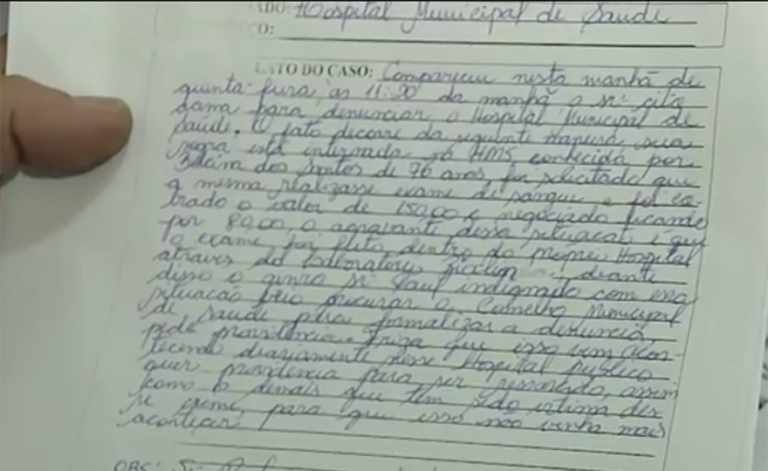 ADO: Hospital Municipal de Saúde
ÇO:
LATO DO CASO: Compareceu nesta manhã de
quinta-feira, às 11:20 da manhã o sr. cita
dama para denunciar o Hospital Municipal de
Saúde. O fato decorre da seguinte maneira, sua
sogra está internada no HMS conhecida por
dos Santos de 76 anos, foi solicitado que
a mesma realizasse exame de sangue, e foi co-
brado o valor de 150,00 e negociado ficando
por 80,00, o agravante dessa situação é que
o exame foi feito dentro do próprio Hospital
através do laboratório diante
disso o genro sr. Saul indignado com essa
situação veio procurar o Conselho Municipal
de Saúde para formalizar a denuncia,
pede providência. Friza que isso vem acon-
tecendo diariamente nesse Hospital público
quer providencia para ser ressarcido, assim
como o demais que tem sido vitima des
se crime, para que isso não venha mais
acontecer
OBS: